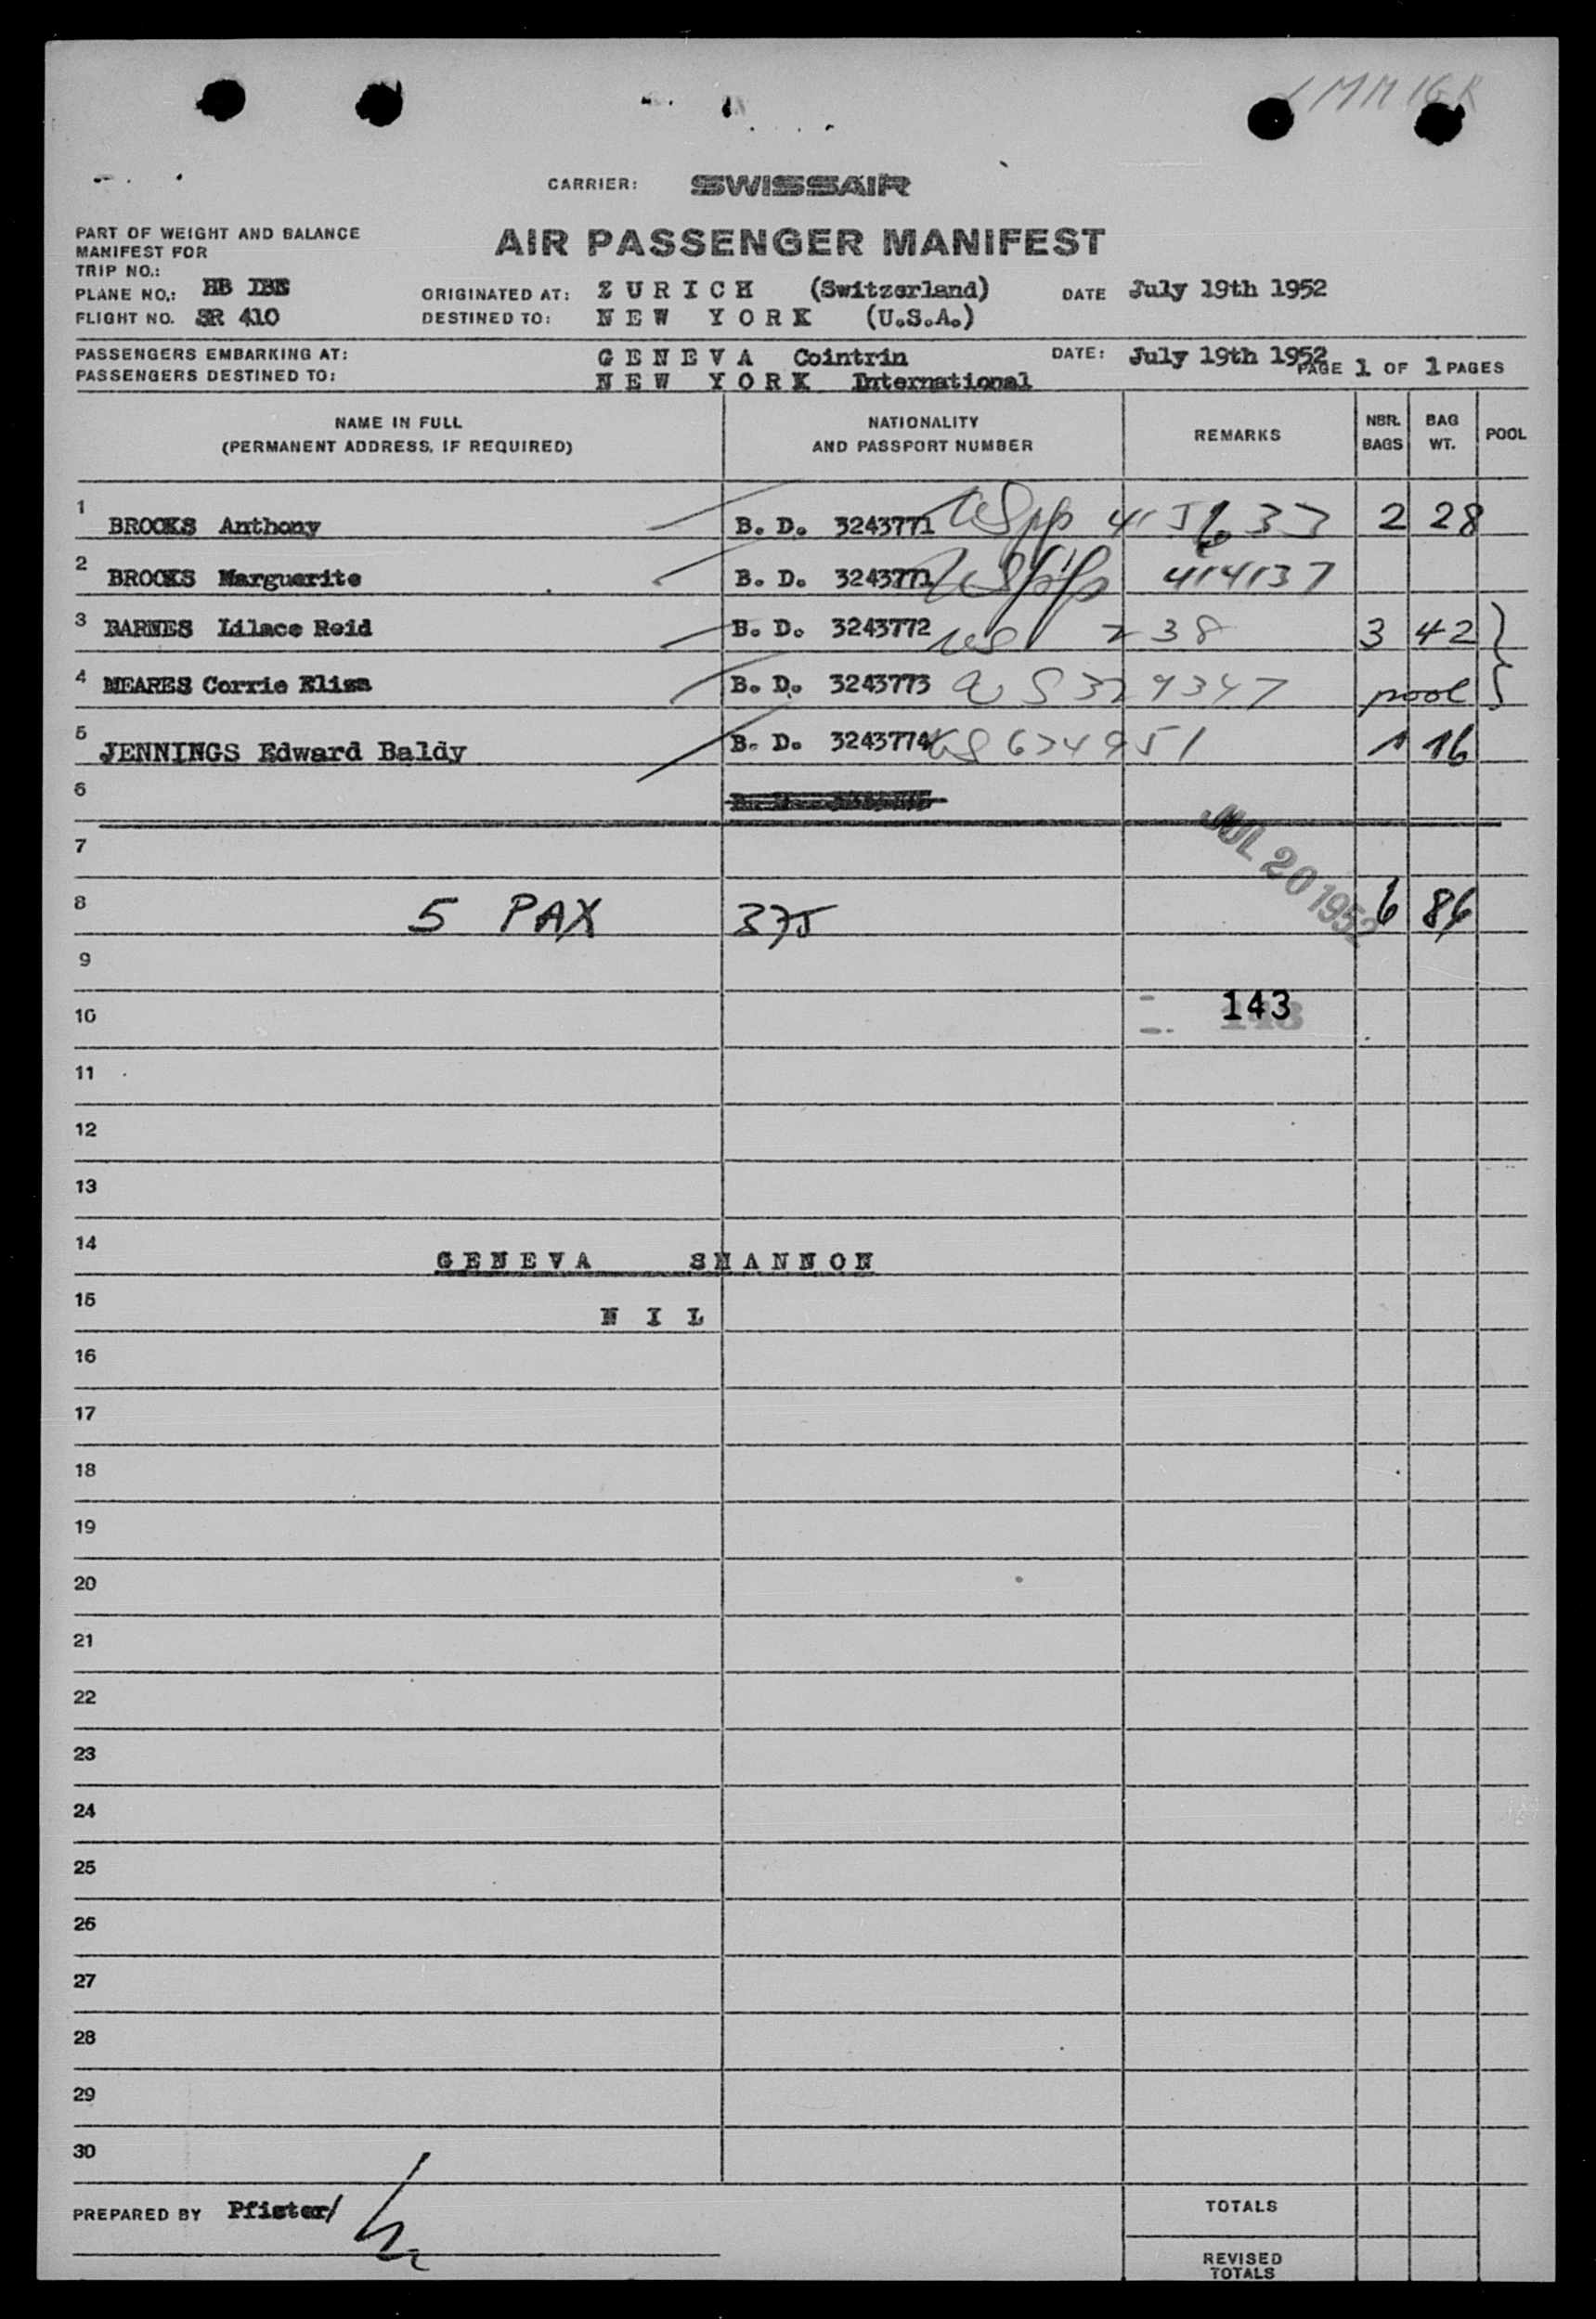 IMMIGR
CARRIER: SWISSAIR
AIR PASSENGER MANIFEST
PART OF WEIGHT AND BALANCE
MANIFEST FOR
TRIP NO.:
PLANE NO.: HB IBE
FLIGHT NO. SR 410
ORIGINATED AT: Z U R I C H (Switzerland) DATE July 19th 1952
DESTINED TO: N E W Y O R K (U.S.A.)
PASSENGERS EMBARKING AT: G E N E V A Cointrin DATE: July 19th 1952
PASSENGERS DESTINED TO: N E W Y O R K International PAGE 1 OF 1 PAGES
NAME IN FULL
(PERMANENT ADDRESS, IF REQUIRED)
NATIONALITY
AND PASSPORT NUMBER
REMARKS
NBR.
BAGS
BAG
WT.
POOL
1 BROOKS Anthony B. D. 3243771 USpp 415633 2 28
2 BROOKS Marguerite B. D. 3243771 USpp 414137
3 BARNES Lilace Reid B. D. 3243772 US 238 3 42
4 MEARES Corrie Eliza B. D. 3243773 US 329347 pool
5 JENNINGS Edward Baldy B. D. 3243774 US 624951 1 16
6
7
JUL 20 1952
8 5 PAX 375 6 86
9
10 143
11
12
13
14 G E N E V A S H A N N O N
15 N I L
16
17
18
19
20
21
22
23
24
25
26
27
28
29
30
PREPARED BY Pfister/
TOTALS
REVISED
TOTALS